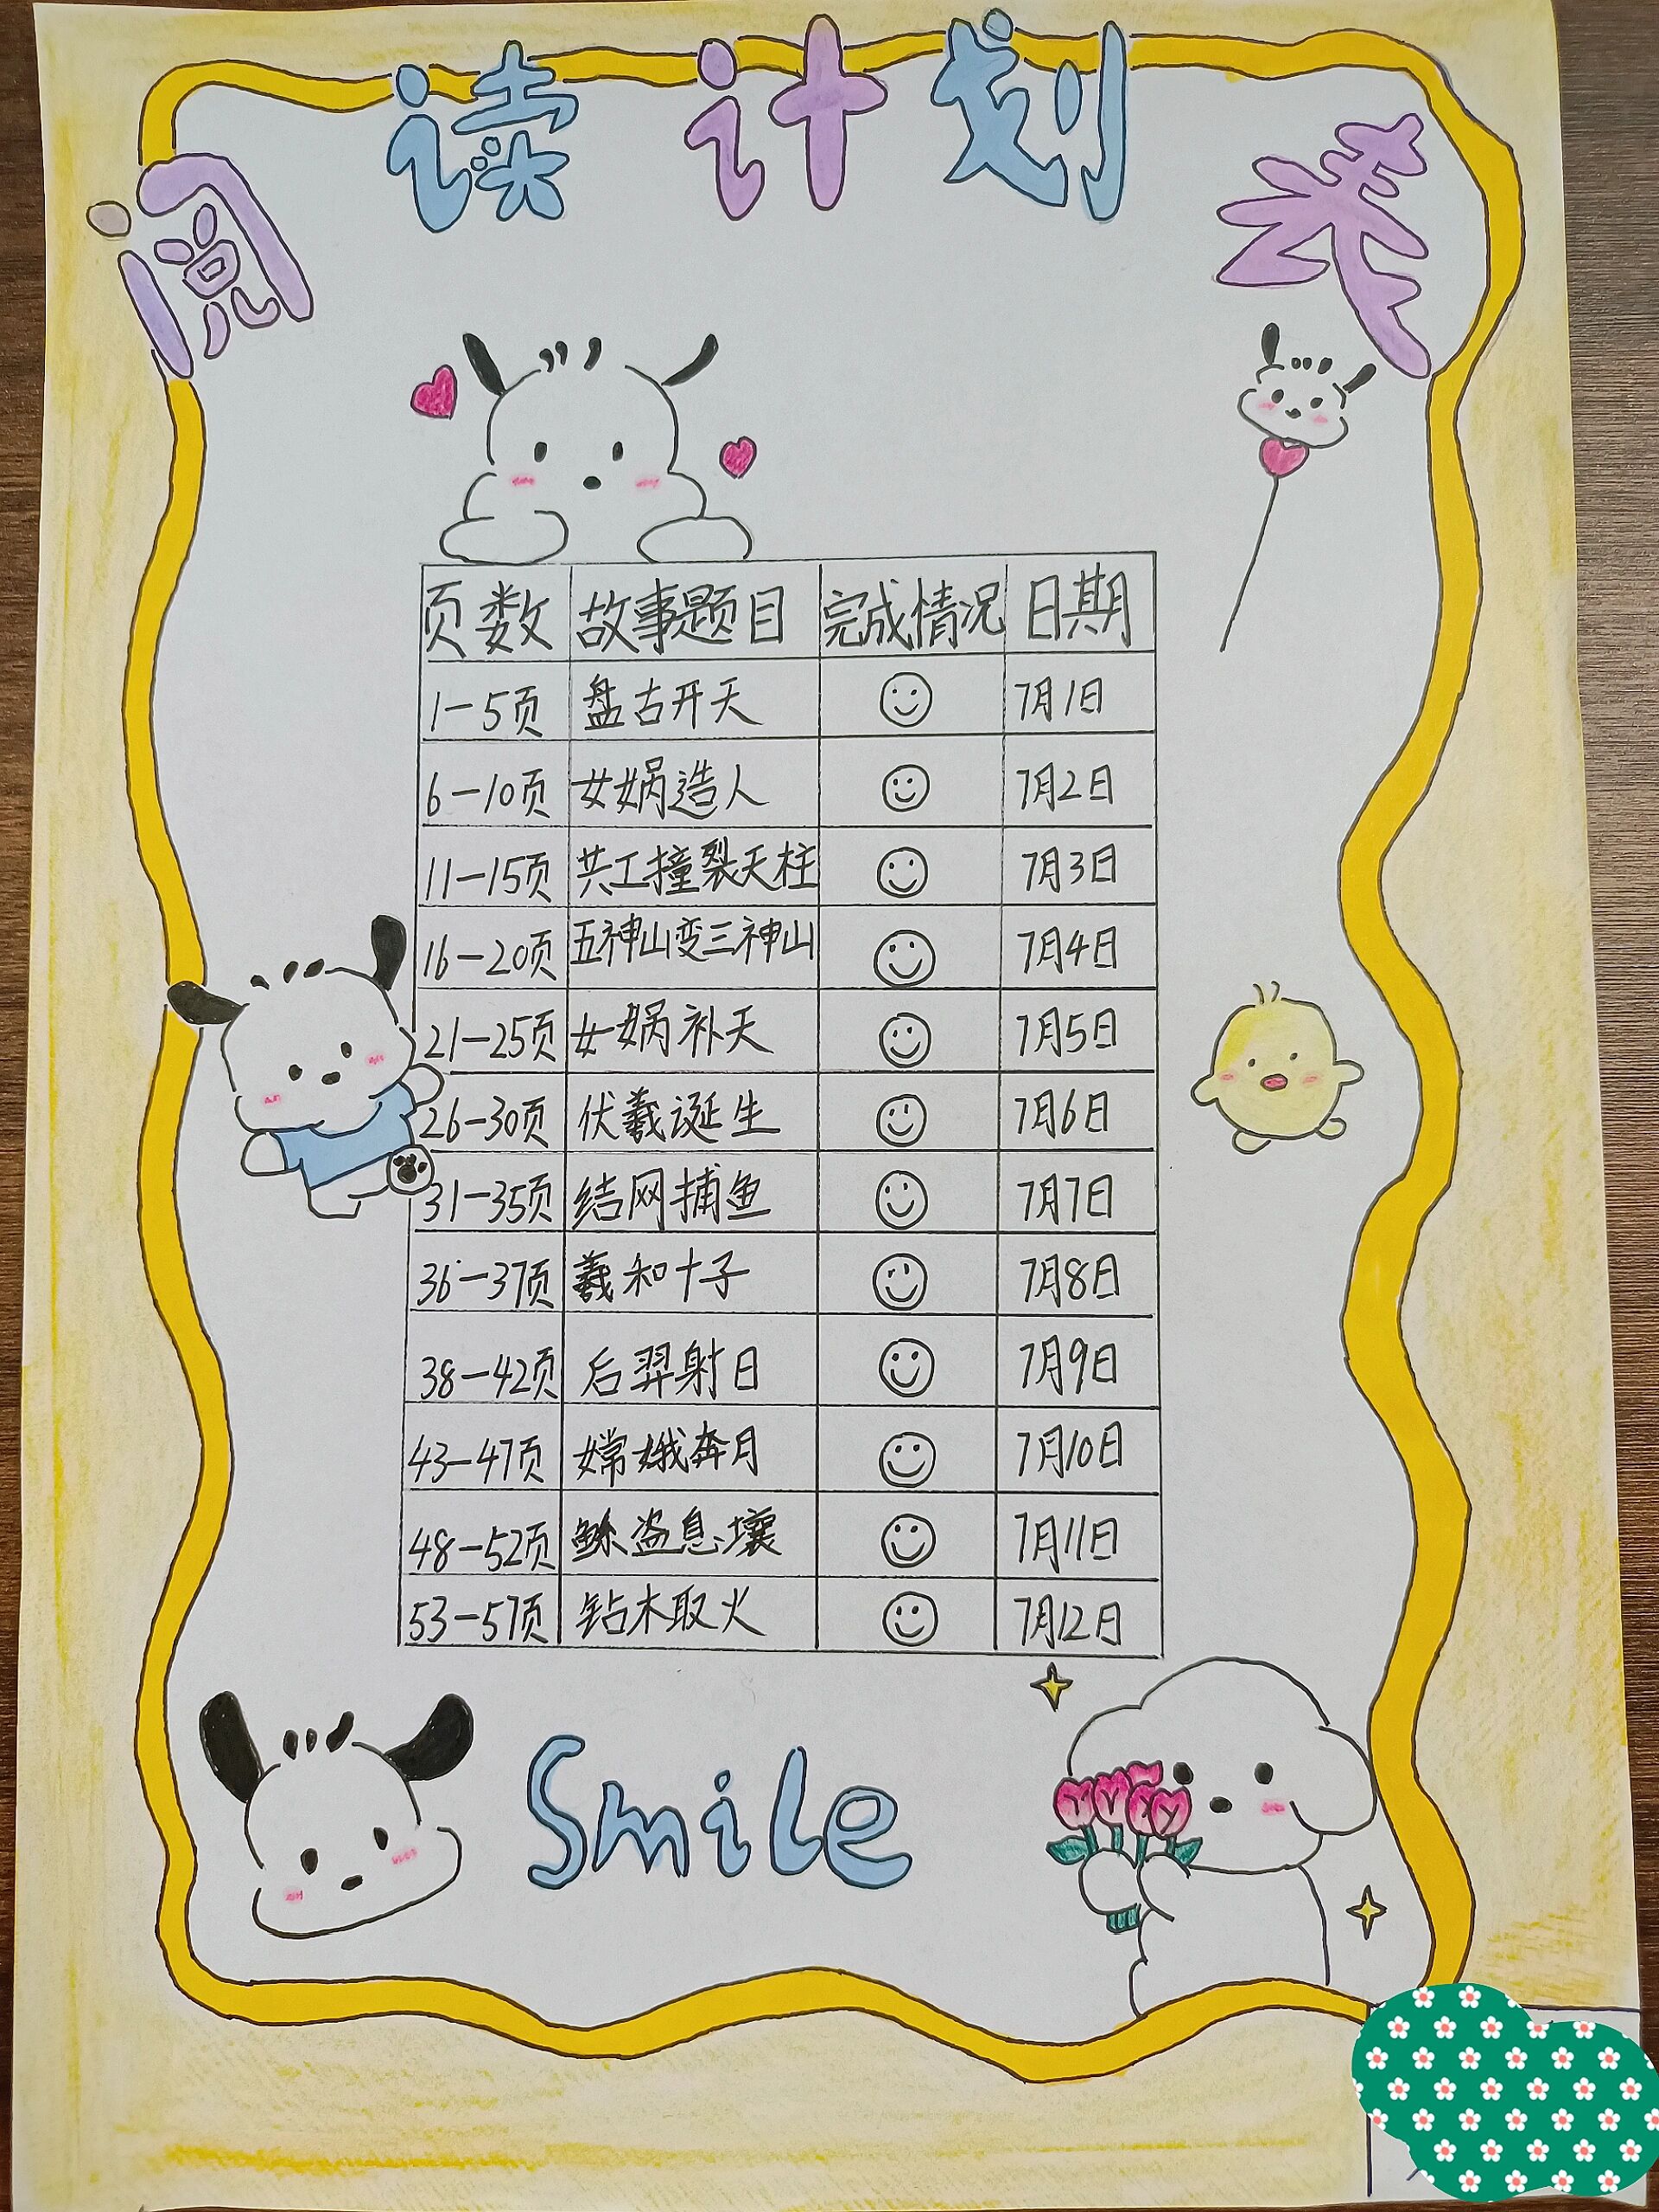 阅读计划表
页数 故事题目 完成情况 日期
1-5页 盘古开天 7月1日
6-10页 女娲造人 7月2日
11-15页 共工撞裂天柱 7月3日
16-20页 五神山变三神山 7月4日
21-25页 女娲补天 7月5日
26-30页 伏羲诞生 7月6日
31-35页 结网捕鱼 7月7日
36-37页 羲和十子 7月8日
38-42页 后羿射日 7月9日
43-47页 嫦娥奔月 7月10日
48-52页 鲧盗息壤 7月11日
53-57页 钻木取火 7月12日
Smile